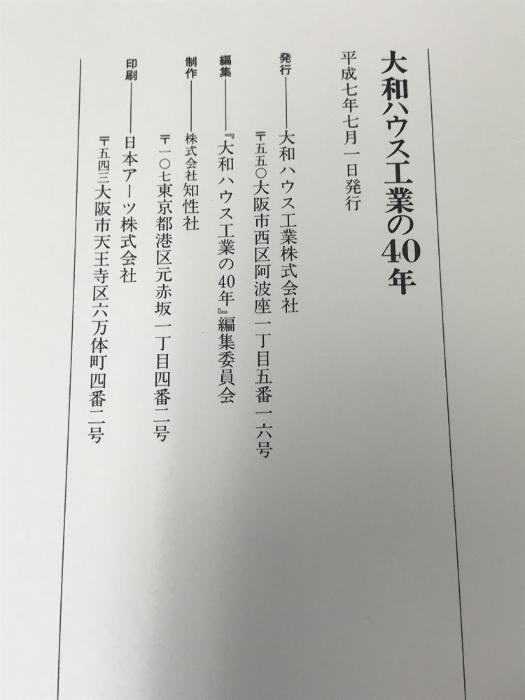 大和ハウス工業の40年
平成七年七月一日発行
発行――大和ハウス工業株式会社
〒五五〇大阪市西区阿波座一丁目五番一六号
編集――『大和ハウス工業の40年』編集委員会
制作――株式会社知性社
〒一〇七東京都港区元赤坂一丁目四番二号
印刷――日本アーツ株式会社
〒五四三大阪市天王寺区六万体町四番二号